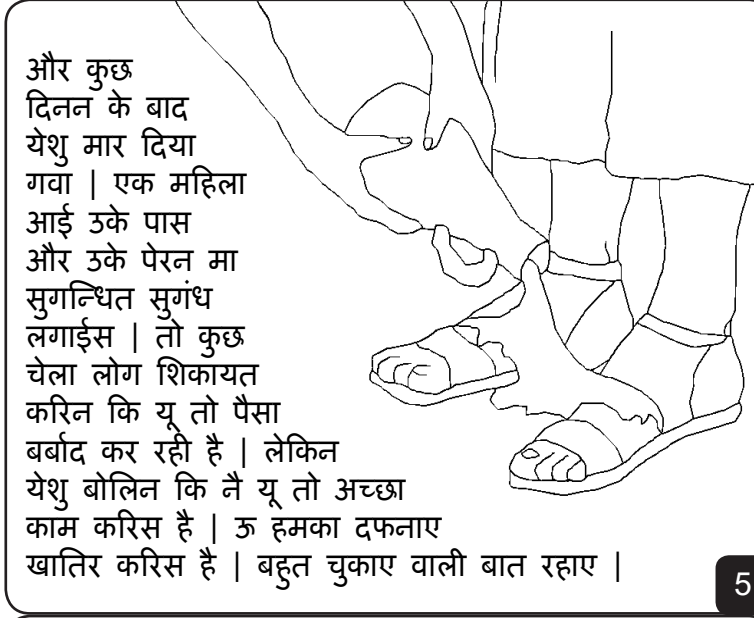 और कुछ
दिनन के बाद
येशु मार दिया
गवा | एक महिला
आई उके पास
और उके पेरन मा
सुगन्धित सुगंध
लगाईस | तो कुछ
चेला लोग शिकायत
करिन कि यू तो पैसा
बर्बाद कर रही है | लेकिन
येशु बोलिन कि नै यू तो अच्छा
काम करिस है | ऊ हमका दफनाए
खातिर करिस है | बहुत चुकाए वाली बात रहाए |
5